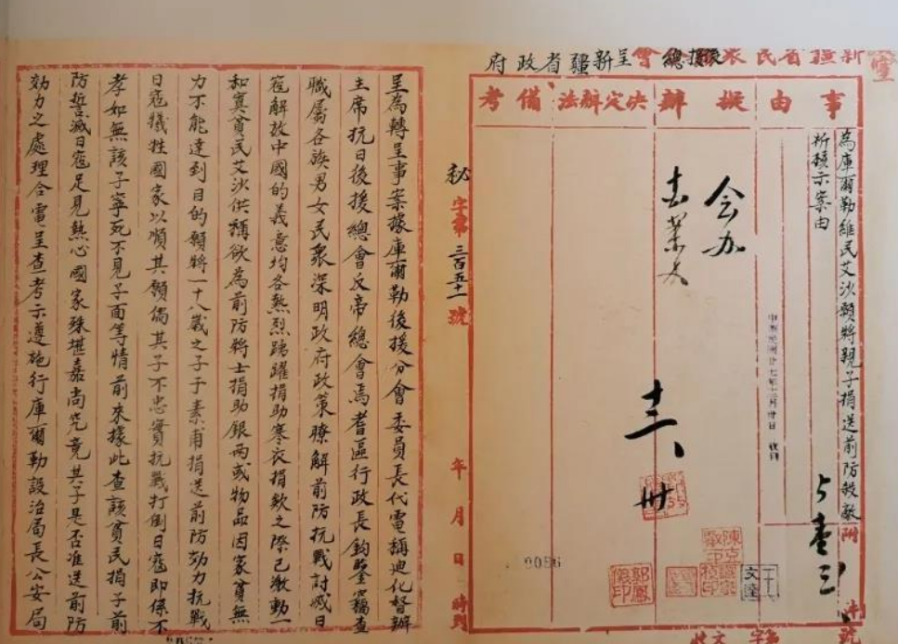 新疆省民眾
後援總會呈新疆省政府
事由
擬辦
決定辦法
備考
為庫爾勒維民艾沙願將親子捐送前防殺敵
祈核示案由
附
会办
十一、卅
0096
秘字第三百五十一號
年月日時到
呈為轉呈事案據庫爾勒後援分會委員長代電稱迪化督辦
主席抗日後援總會反帝總會焉耆區行政長鈞鑒竊查
職屬各族男女民眾深明政府政策瞭解前防抗戰討滅日
寇解放中國的義意均各熱烈踴躍捐助寒衣捐欵之際已激動一
和寘貧民艾沙供稱欲為前防將士捐助銀両或物品因家貧無
力不能達到目的願將一十八歲之子于素甫捐送前防効力抗戰
日寇犧牲國家以順其願倘其子不忠實抗戰打倒日寇即係不
孝如無該子寧死不見子面等情前來據此查該貧民捐子前
防誓滅日寇足見熱心國家殊堪嘉尚究竟其子是否准送前防
効力之處理合電呈查考示遵施行庫爾勒設治局長公安局